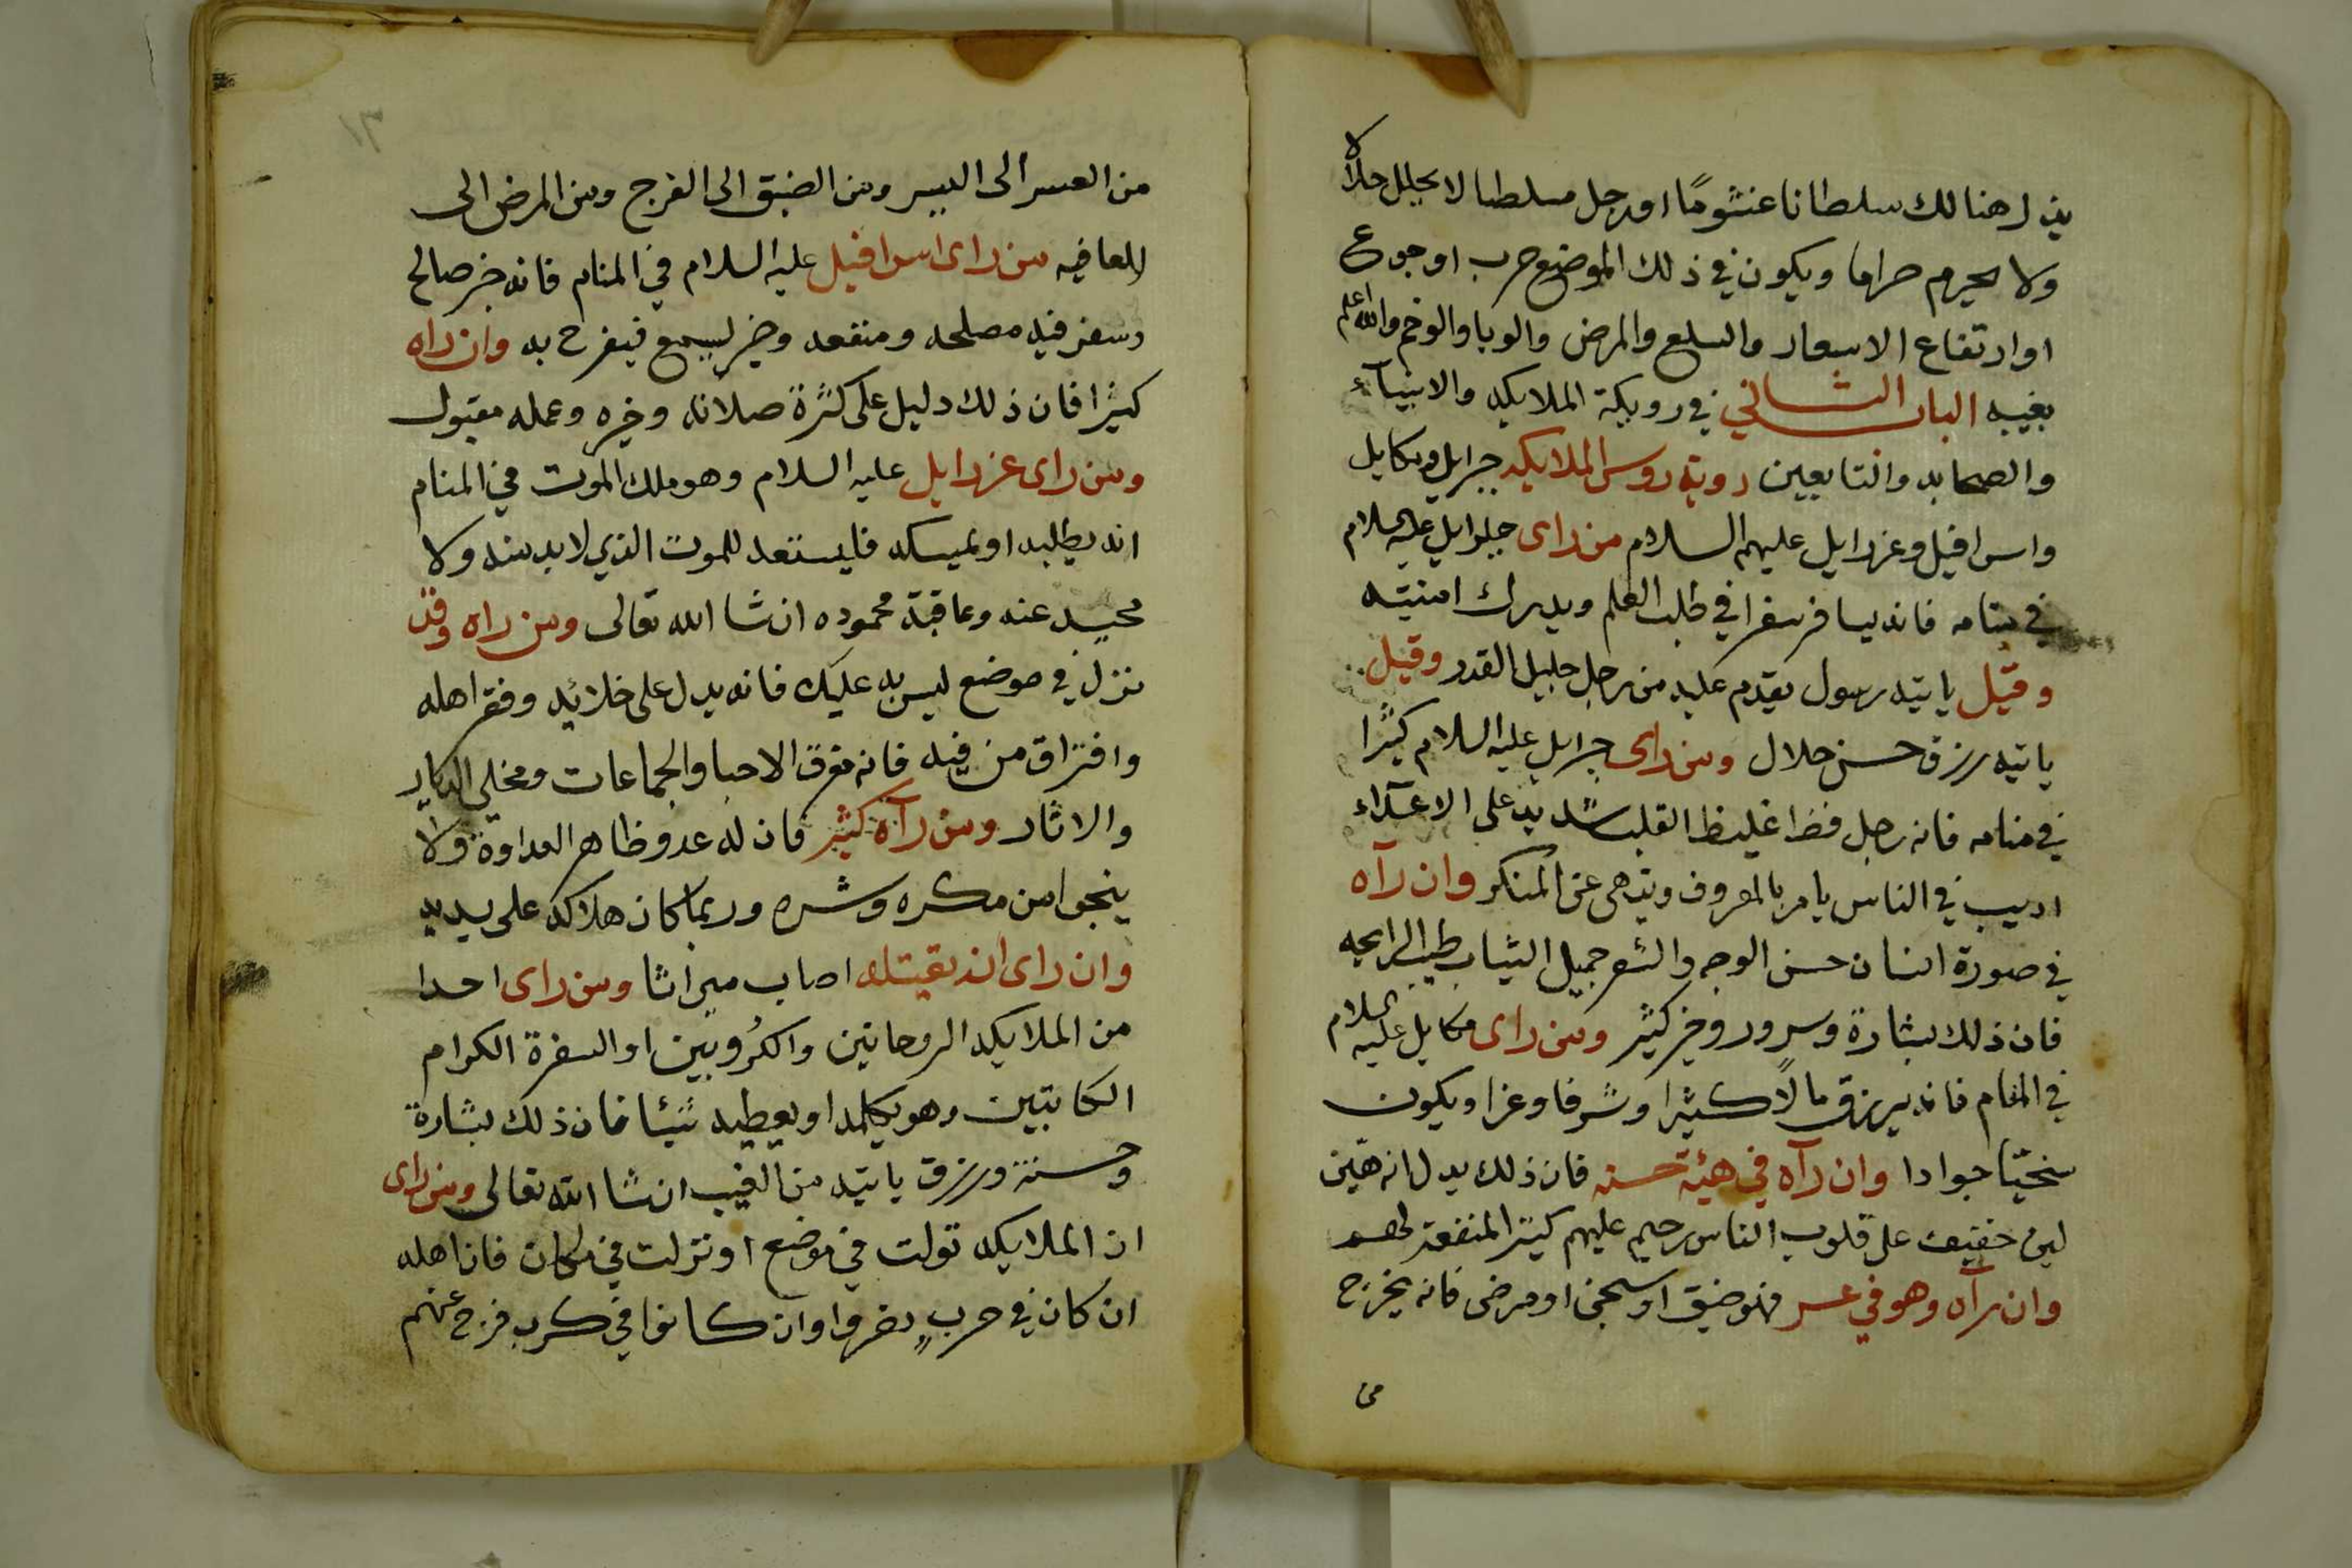 ينزل هنالك سلطانا غشوما او رجل مسلطا لا يحلل حلالا
ولا يحرم حراما ويكون في ذلك الموضع حرب او جوع
او ارتفاع الاسعار والسلع والمرض والوبا والوخم والله اعلم
بغيبه الباب الثاني في رويية الملايكه والانبيآء
والصحابه والتابعين روية روس الملايكه جبرايل وميكايل
واسرافيل وعزرايل عليهم السلام من راى جبرايل عليه السلام
في منامه فانه يسافر سفرا في طلب العلم ويدرك امنيته
وقيل ياتيه رسول يقدم عليه من رجل جليل القدر وقيل
ياتيه رزق حسن حلال ومن راى جبرايل عليه السلام كثيرا
في منامه فانه رجل فظا غليظ القلب شديد على الاعدآء
اديب في الناس يامر بالمعروف وينهى عن المنكر وان رآه
في صورة انسان حسن الوجه والشعر جميل الثياب طيب الرايحه
فان ذلك بشارة وسرور وخير كثير ومن راى مكايل عليه السلام
في المنام فانه يرزق مالا كثيرا وشرفا وعزا ويكون
سخيّا جوادا وان رآه في هيئة حسنه فان ذلك يدل انه هيّن
لين خفيف على قلوب الناس رحيم عليهم كثير المنفعة لهم
وان رآه وهو في عسر فهو ضيق او سجن او مرض فانه يخرج
من
١٣
من العسر الى اليسر ومن الضيق الى الفرج ومن المرض الى
العافيه من راى اسرافيل عليه السلام في المنام فانه خير صالح
وسفر فيه مصلحه ومنفعه وخبر يسمع فيفرح به وان راه
كثيرا فان ذلك دليل على كثرة صلاته وخيره وعمله مقبول
ومن راى عزرايل عليه السلام وهو ملك الموت في المنام
انه يطلبه او يمسكه فليستعد للموت الذي لا بد منه ولا
محيد عنه وعاقبة محموده ان شا الله تعالى ومن راه وقد
نزل في موضع ليس به عليك فانه يدل على خلائه وفقر اهله
وافتراق من فيه فانه مفرق الاحبا والجماعات ومخلي الديار
والاثار ومن رآه كثير فان له عدو ظاهر العداوة ولا
ينجوا من مكره وشره وربما كان هلاكه على يديه
وان راى انه يقتله اصاب ميراثا ومن راى احدا
من الملايكه الروحانين والكروبين او السفرة الكرام
الكاتبين وهو يكلمه او يعطيه شيئا فان ذلك بشارة
وحسنة ورزق ياتيه من الغيب ان شا الله تعالى ومن راى
ان الملايكه تولت في موضع او نزلت في مكان فان اهله
ان كان في حرب نصروا وان كانوا في كرب فرج عنهم